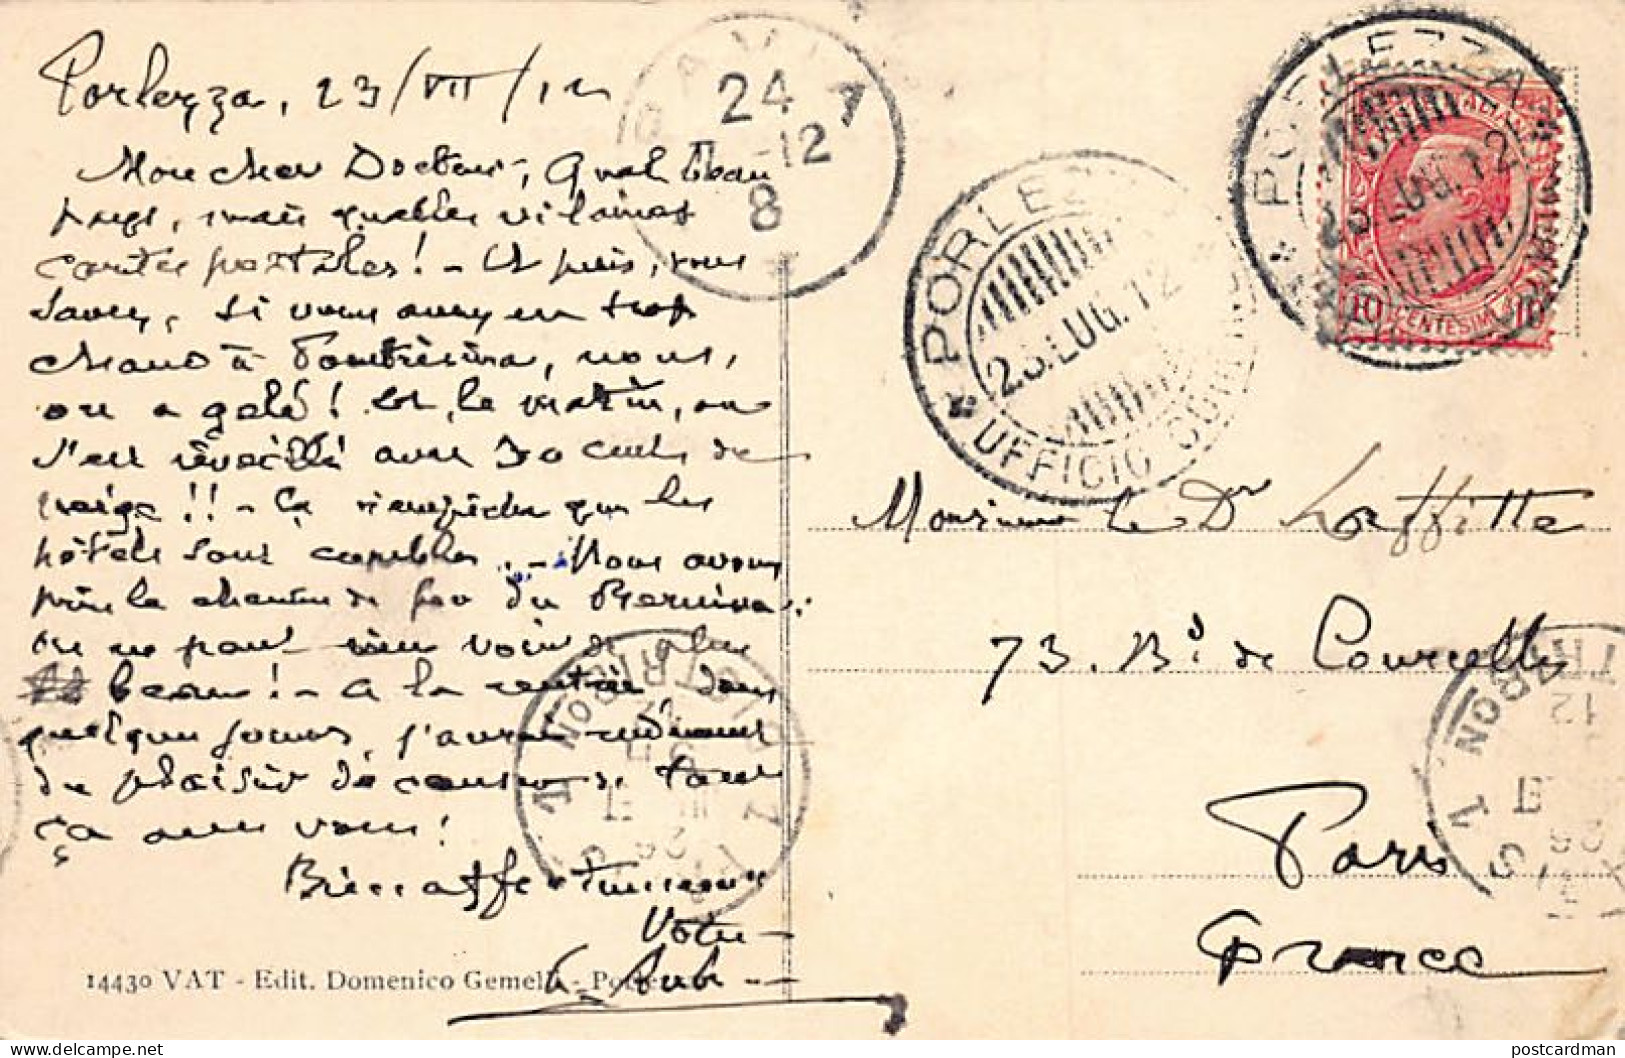 Porlezza, 23/VII/12
Mon cher Docteur, Quel beau
pays, mais quelles vilaines
cartes postales! - Et puis, vous
savez, si vous avez eu trop
chaud à Pontrésina, nous,
on a gelé! Et, le matin, on
s'est réveillé avec 30 cent. de
neige!! - Ça n'empêche que les
hôtels sont combles. - Nous avons
pris le chemin de fer du Bernina:
on ne peut rien voir de plus
beau! - A la rentrée, dans
quelques jours, j'aurai
du plaisir de causer de tout
ça avec vous!
Bien affectueusement
Votre
14430 VAT - Edit. Domenico Gemelli - Porlezza
PAVIA
24 7
-12
8
PORLEZZA
23.LUG.12
UFFICIO
PORLEZZA
23 LUG.12
10 CENTESIMI 10
Monsieur le Dr Laffitte
73. Bd de Courcelles
Paris
France
postcardman